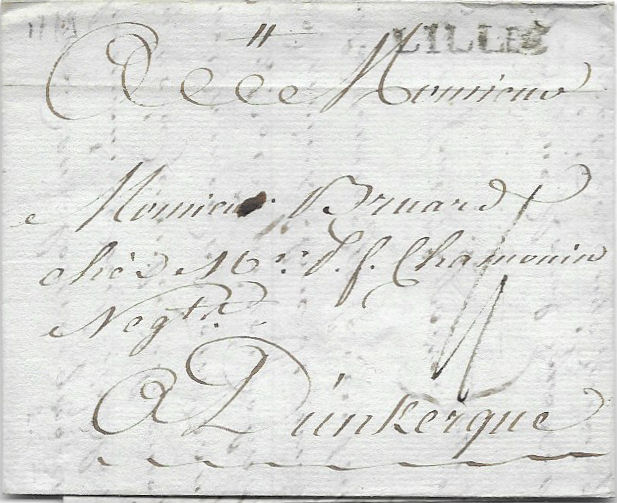 LILLE
A Monsieur
Monsieur Bruard
chés Mr. P. f. Chamonin
Negt.
A Dunkerque